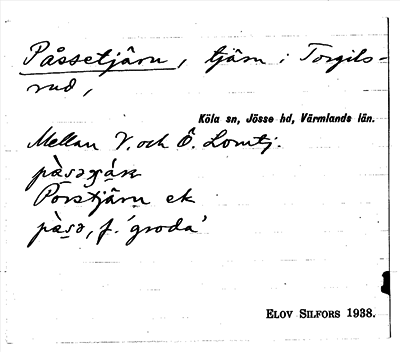 Påssetjärn, tjärn i Torgils-
rud,
Köla sn, Jösse hd, Värmlands län.
Mellan V. och Ö. Lomtj.
Porstjärn ek
f. 'groda'
ELOV SILFORS 1938.